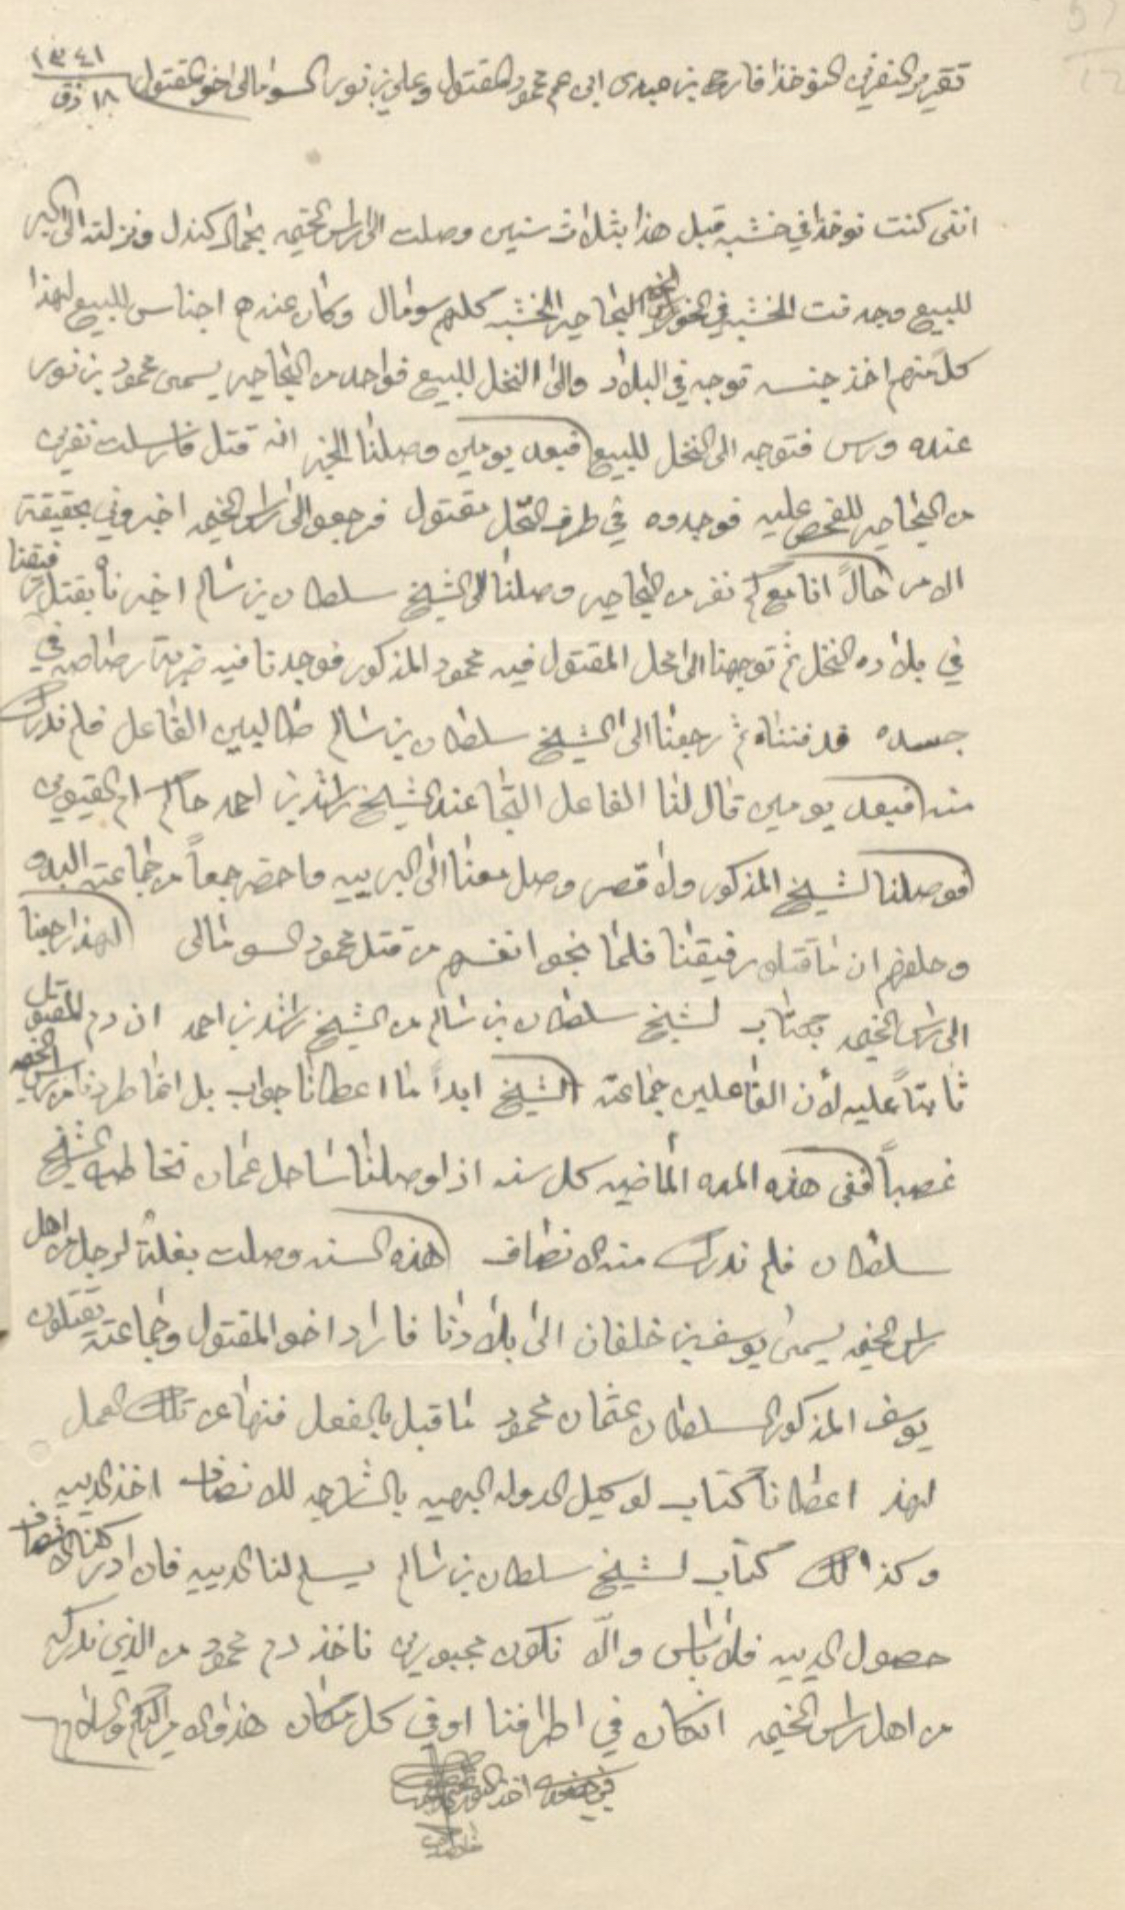 تقرير النفرين النوخذا فارح بن عبدى ابن عم محمود المقتول وعلي بن نور السومالى اخو المقتول ١٨ ذق ١٣٤١
اننى كنت نوخذا في خشبه قبل هذا بثلاث سنين وصلت الى راس الخيمه بحمال كندل ونزلته الى البر
للبيع وجد فت الخشبه في الخور البحاحير الخشبه كلهم سومال وكان عندهم اجناس للبيع لهذا
كلاً منهم اخذ جنسه توجه في البلاد والى النخل للبيع فواحد من البحاحير يسمى محمود بن نور
عنده ورس فتوجه الى النخل للبيع فبعد يومين وصلنا الخبر انه قتل فارسلت نفرين
من البحاحير للفحص عليه فوجدوه في طرف النخل مقتول فرجعو الى راس الخيمه اخبروني بحقيقة
الامر حالاً انا مع كم نفر من البحاحير وصلنا الى الشيخ سلطان بن سالم اخبرناه بقتل رفيقنا
في بلاده النخل ثم توجهنا الى محل المقتول فيه محمود المذكور فوجدنا فيه ضربة رصاصه في
جسده فدفنناه ثم رجعنا الى الشيخ سلطان بن سالم طالبين الفاعل فلم ندرك
منه فبعد يومين قال لنا الفاعل التجا عند الشيخ راشد بن احمد حاكم ام القيوين
فوصلنا لشيخ المذكور ولا قصر وصل معنا الى البرييه واحضر جمعاً من جماعته البدو
وحلفهم ان ما قتلو رفيقنا فلما نجوا انفسهم من قتل محمود السومالى لهذا رجعنا
الى راس الخيمه بكتاب لشيخ سلطان بن سالم من الشيخ راشد بن احمد ان دم المقتول
ثابتاً عليه لأن الفاعلين جماعته الشيخ ابداً ما اعطانا جواب بل انما طردنا من راس الخيمه
غصباً ففى هذه المده الماضيه كل سنه اذا وصلنا ساحل عمان نخاطب الشيخ
سلطان فلم ندرك منه الانصاف هذه السنه وصلت بغلة لرجل من اهل
راس الخيمه يسمى يوسف بن خلفان الى بلادنا فاراد اخو المقتول وجماعته يقتلون
يوسف المذكور السلطان عثمان محمود ما قبل بالفعل فنهاء عن تلك العمل
لهذ اعطانا كتاب لوكيل الدوله البهيه بالشارجه للانصاف اخذ الدييه
وكذالك كتاب لشيخ سلطان بن سالم يسلم لنا الدييه فان ادركنا الانصاف
حصول الدييه فلا باس والّا نكون مجبورين ناخذ دم محمود من الذي ندركه
من اهل راس الخيمه انكان في اطرافنا او في كل مكان هذا والامر اليكم والسلام